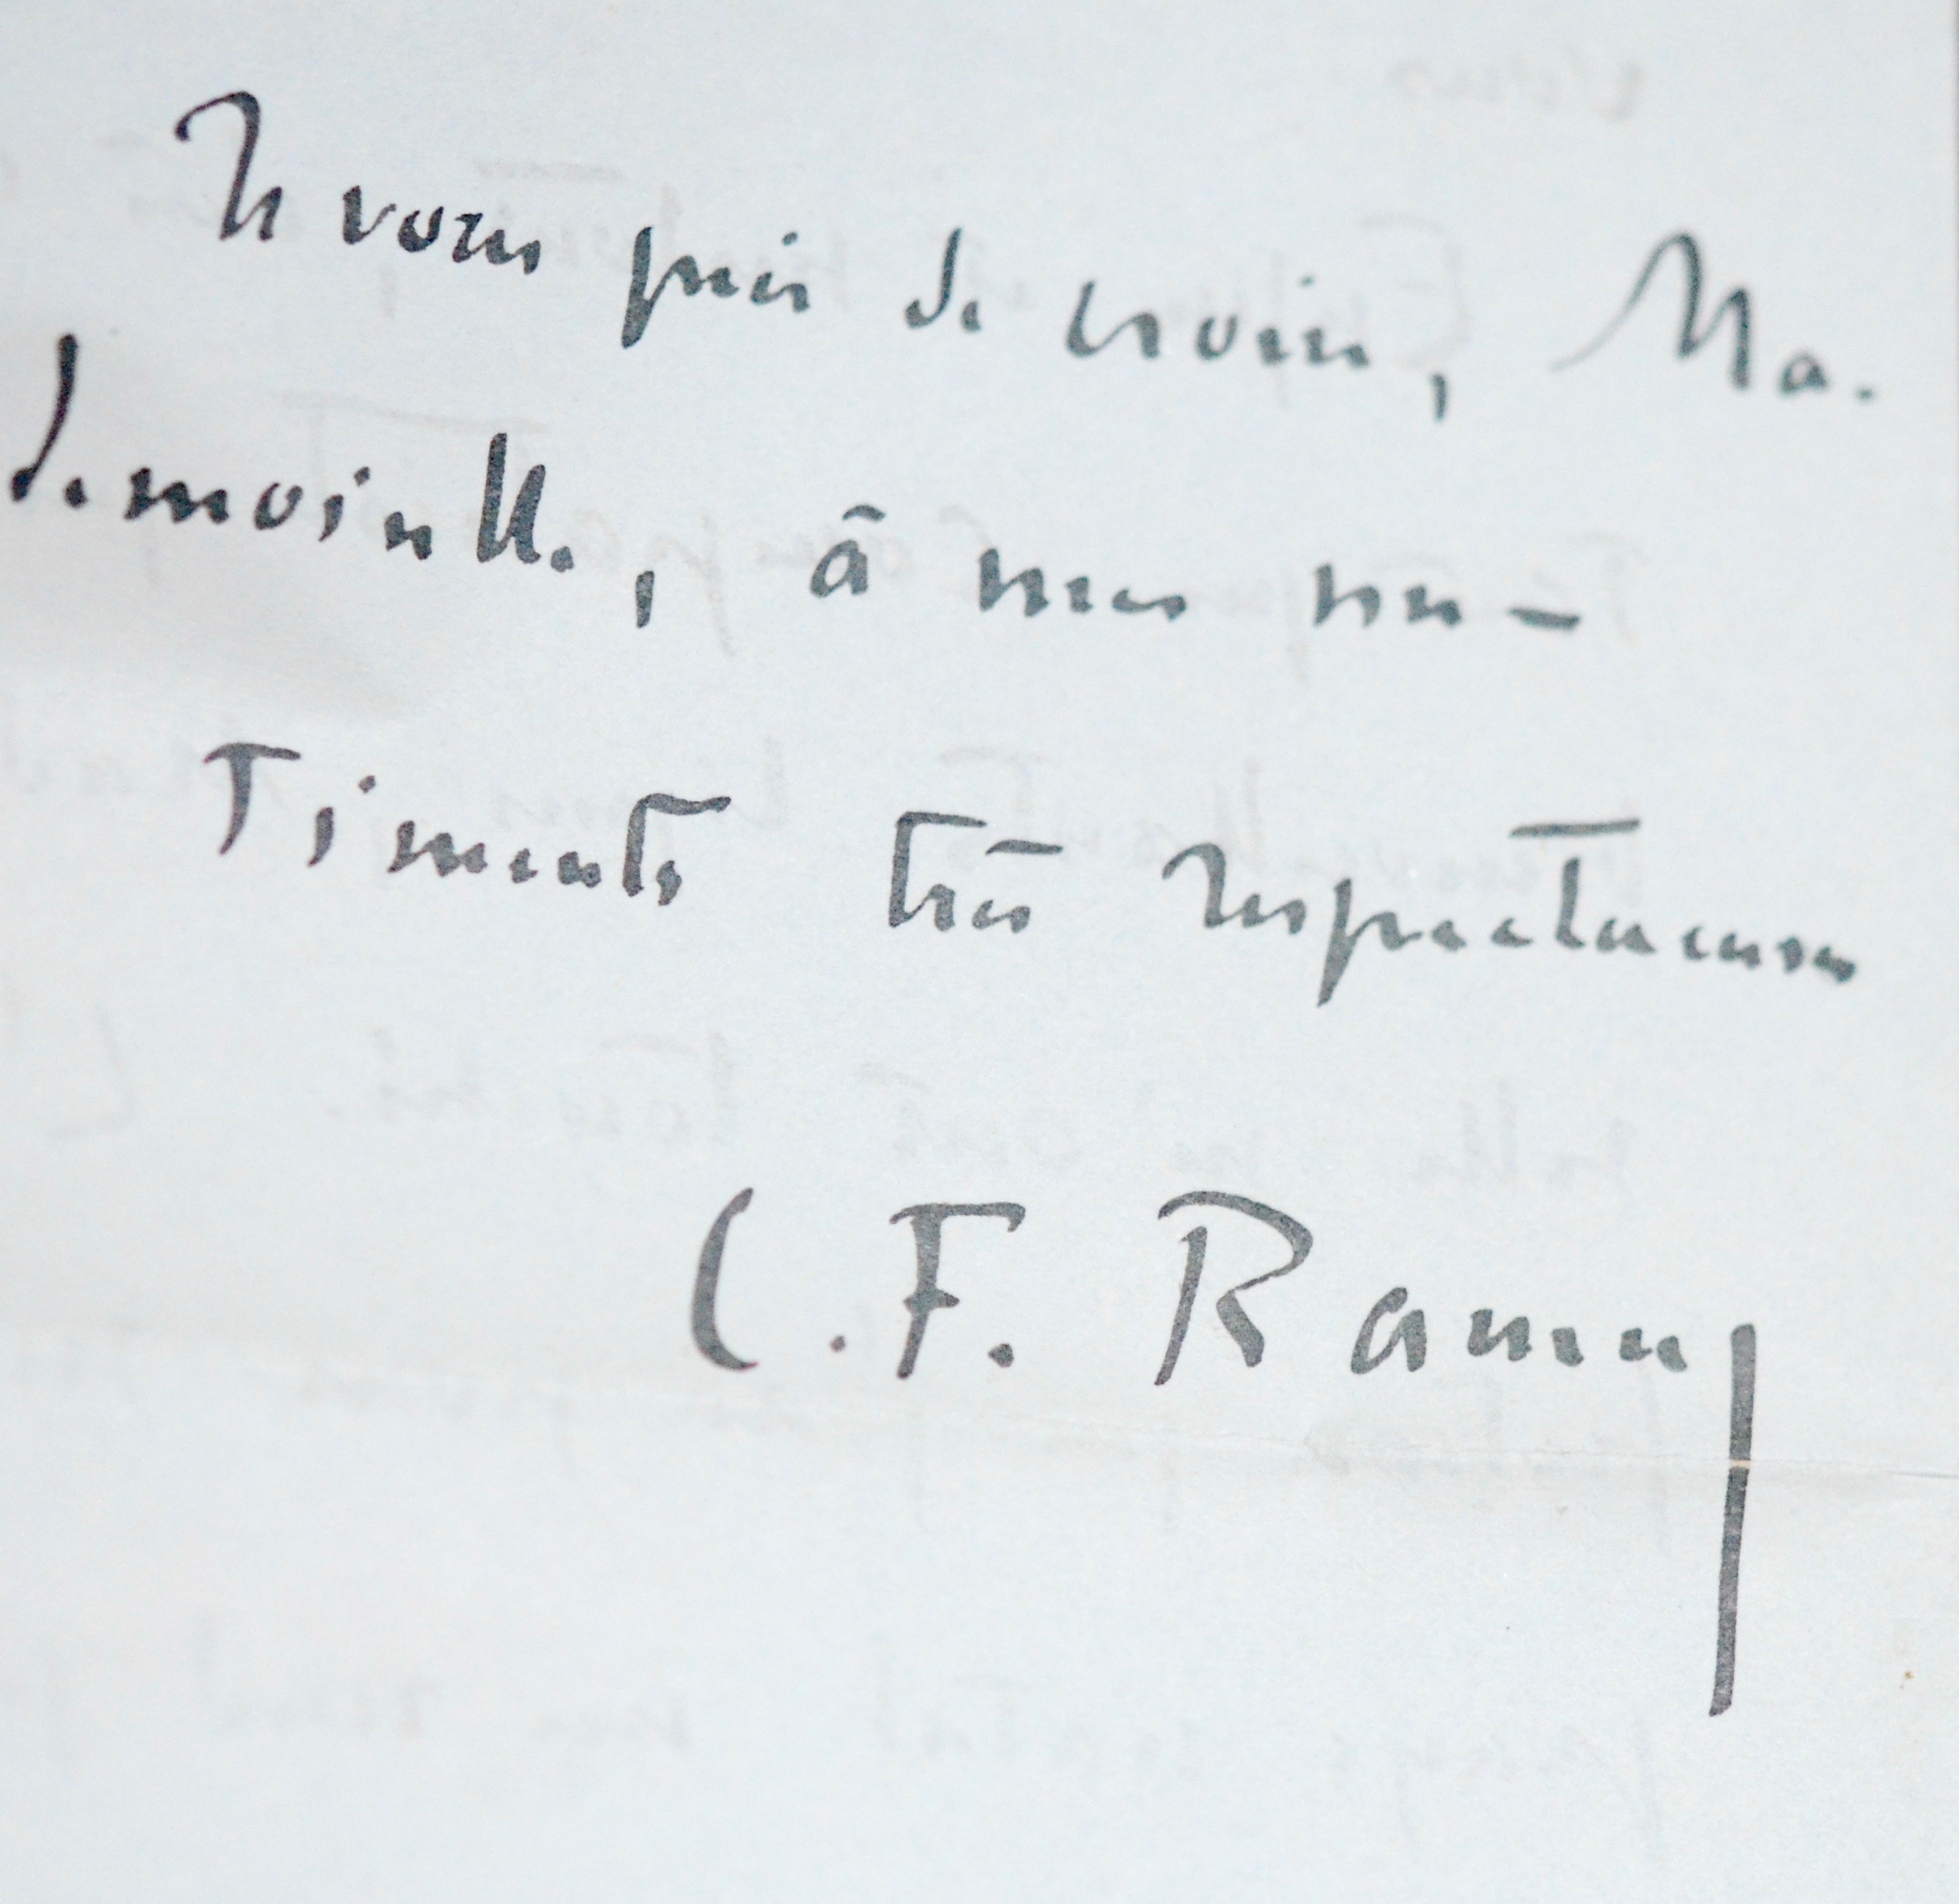 Je vous prie de croire, Ma-
demoiselle, à mes sen-
timents très respectueux
C. F. Ramuz